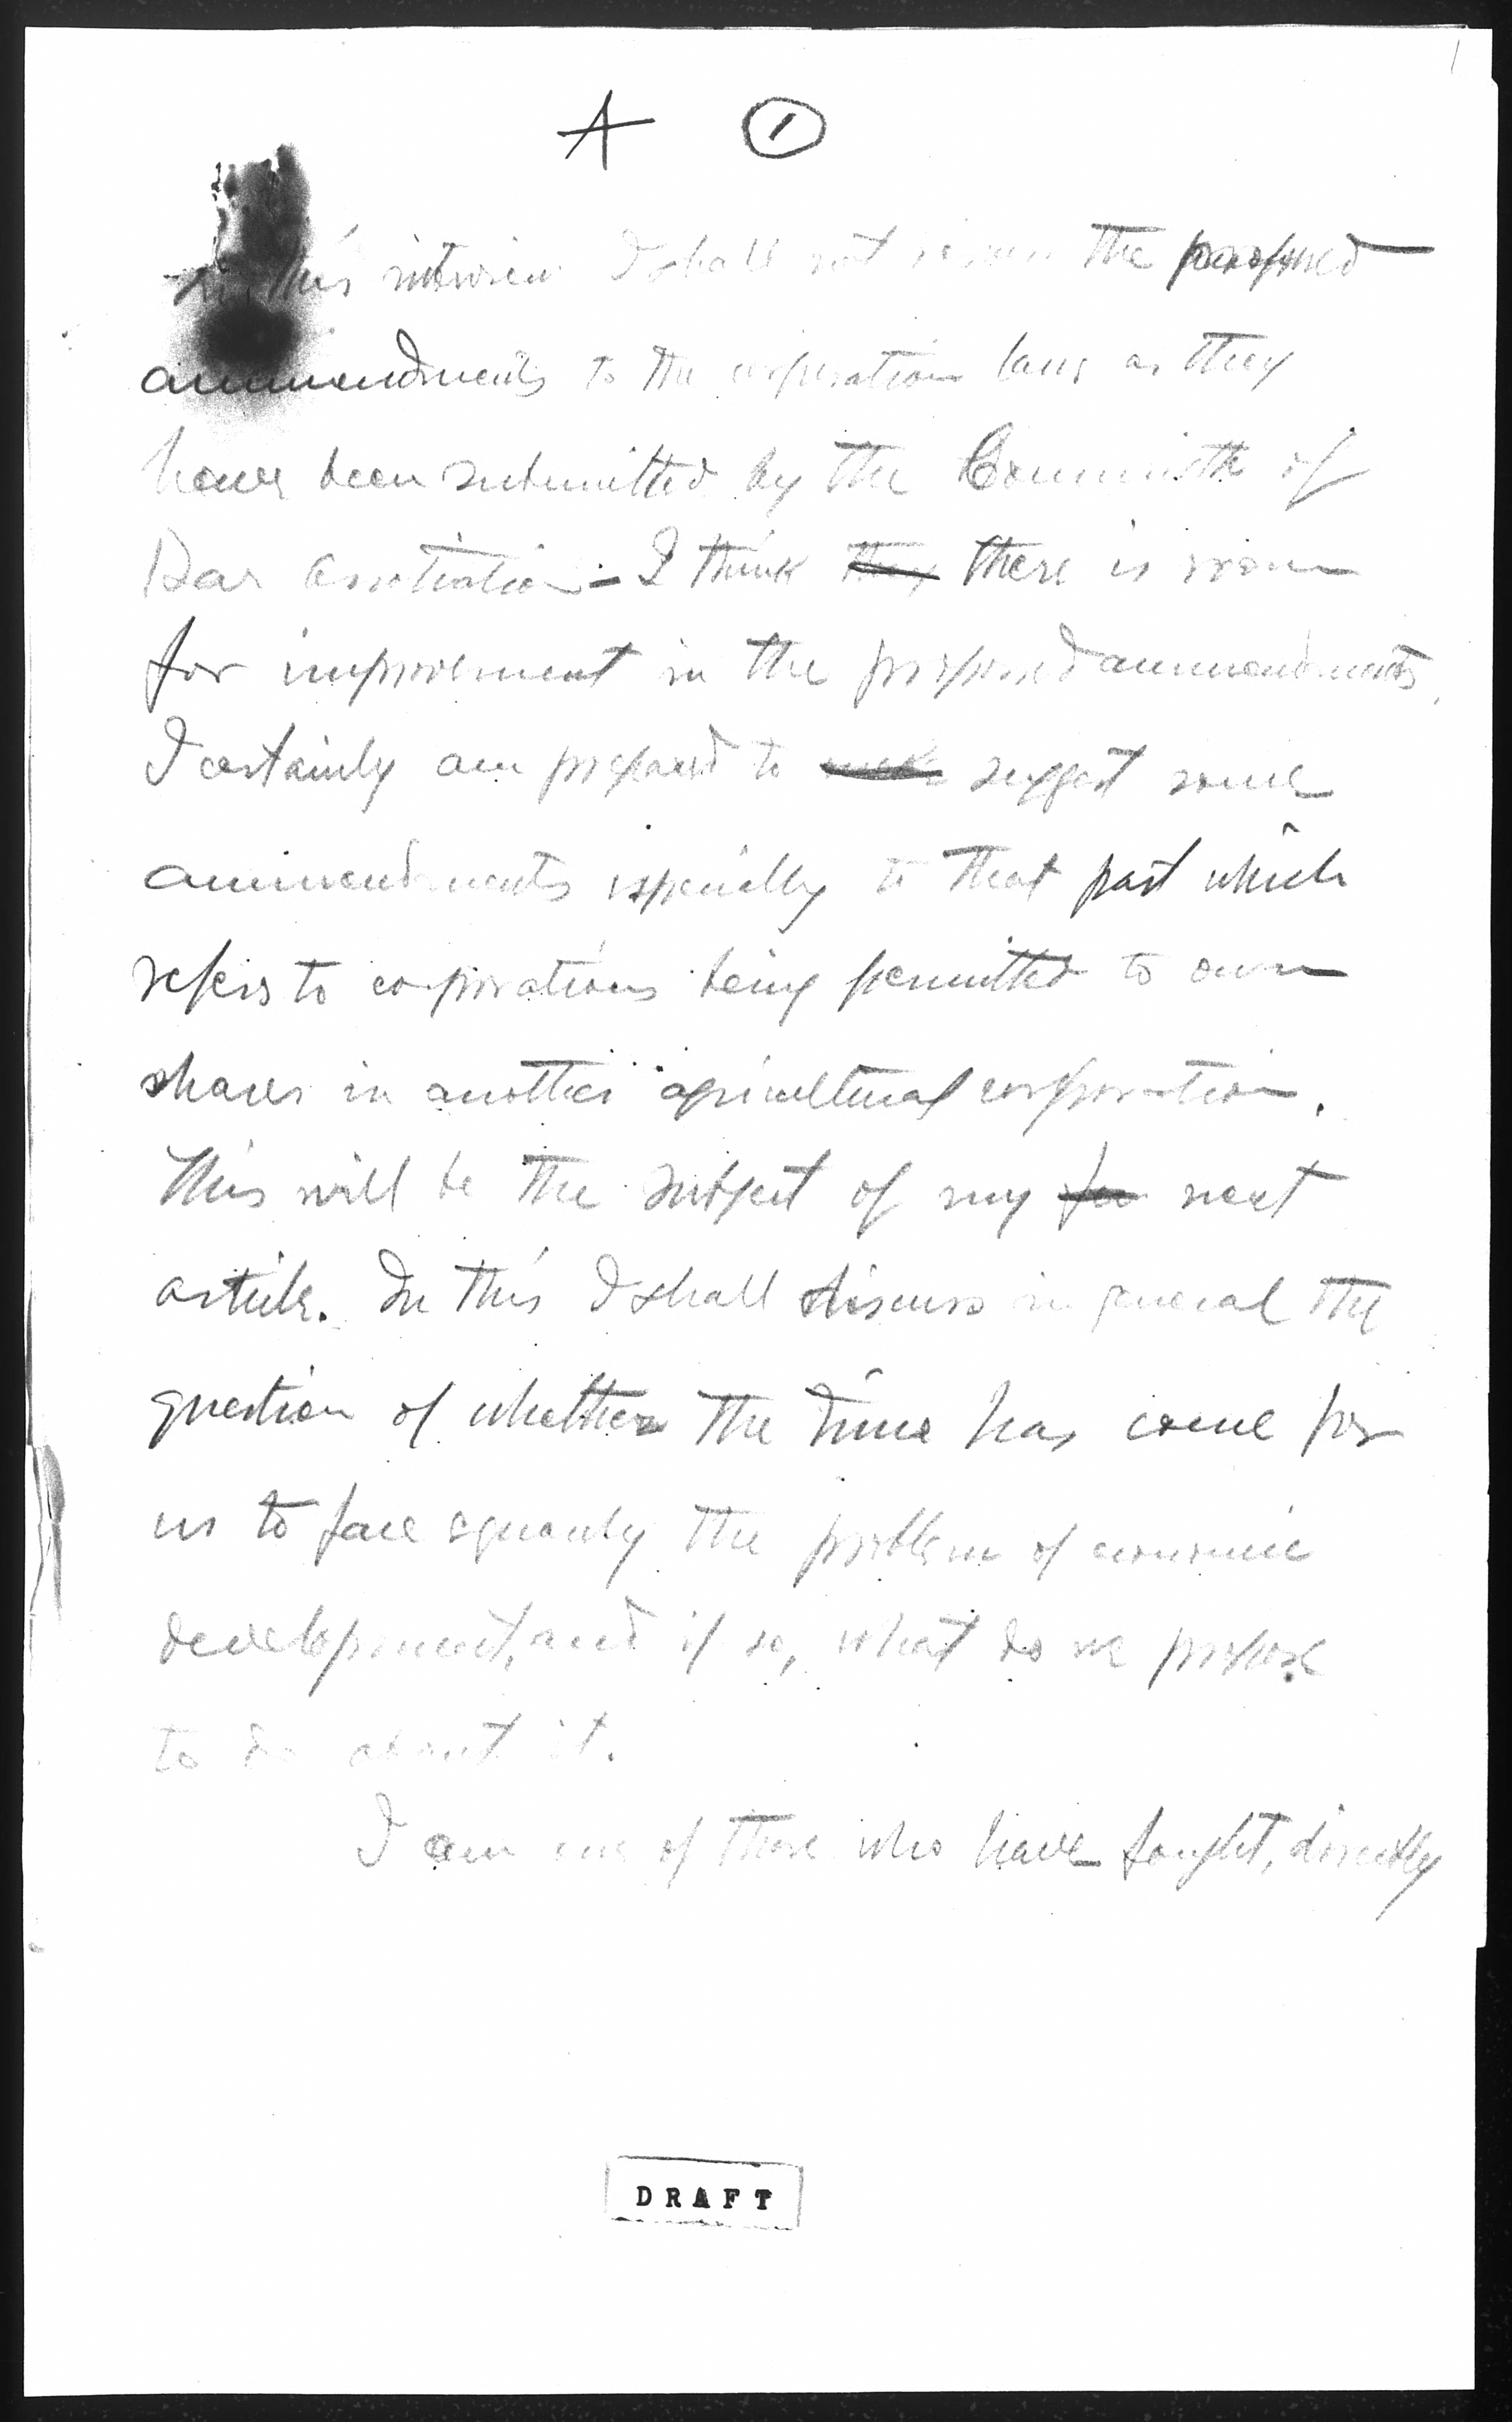 1
A 1
In this interview I shall not the proposed
ammendments to the corporation laws as they
have been submitted by the Committe of
Bar Association - I think they there is room
for improvement in the proposed ammendments.
I certainly am prepared to make suggest some
ammendments especially to that part which
refers to corporations being permitted to own
shares in another agricultural corporation.
This will be the subject of my next
article. In this I shall discuss in general the
question of whether the time has come for
us to face squarely the problem of economic
development, and if so, what do we propose
to do about it.
I am one of those who have fought, directly
DRAFT